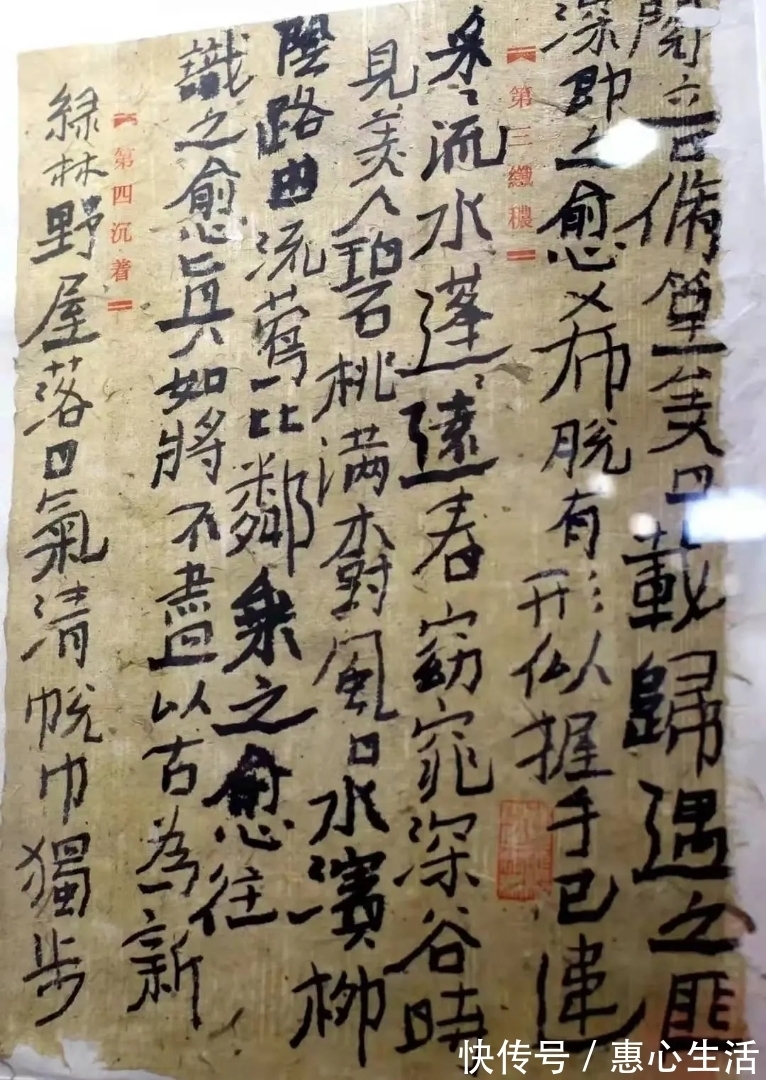 閱音修篁美曰載歸遇之匪
深即之愈希脫有形似握手已違
第三纖穠
采〻流水蓬〻遠春窈窕深谷時
見美人碧桃满樹風日水濱柳
陰路曲流鶯比鄰乘之愈往
識之愈真如將不盡以古為新
第四沉着
綠林野屋落日氣清脫巾獨步
快传号 / 惠心生活